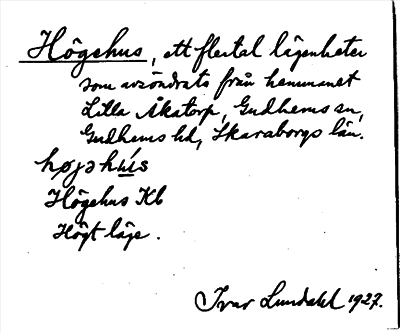 Högehus, ett flertal lägenheter
som avsöndrats från hemmanet
Lilla Åkatorp, Gudhems sn,
Gudhems hd, Skaraborgs län.
højəhús
Högehus Kb
Högt läge.
Ivar Lundahl 1927.